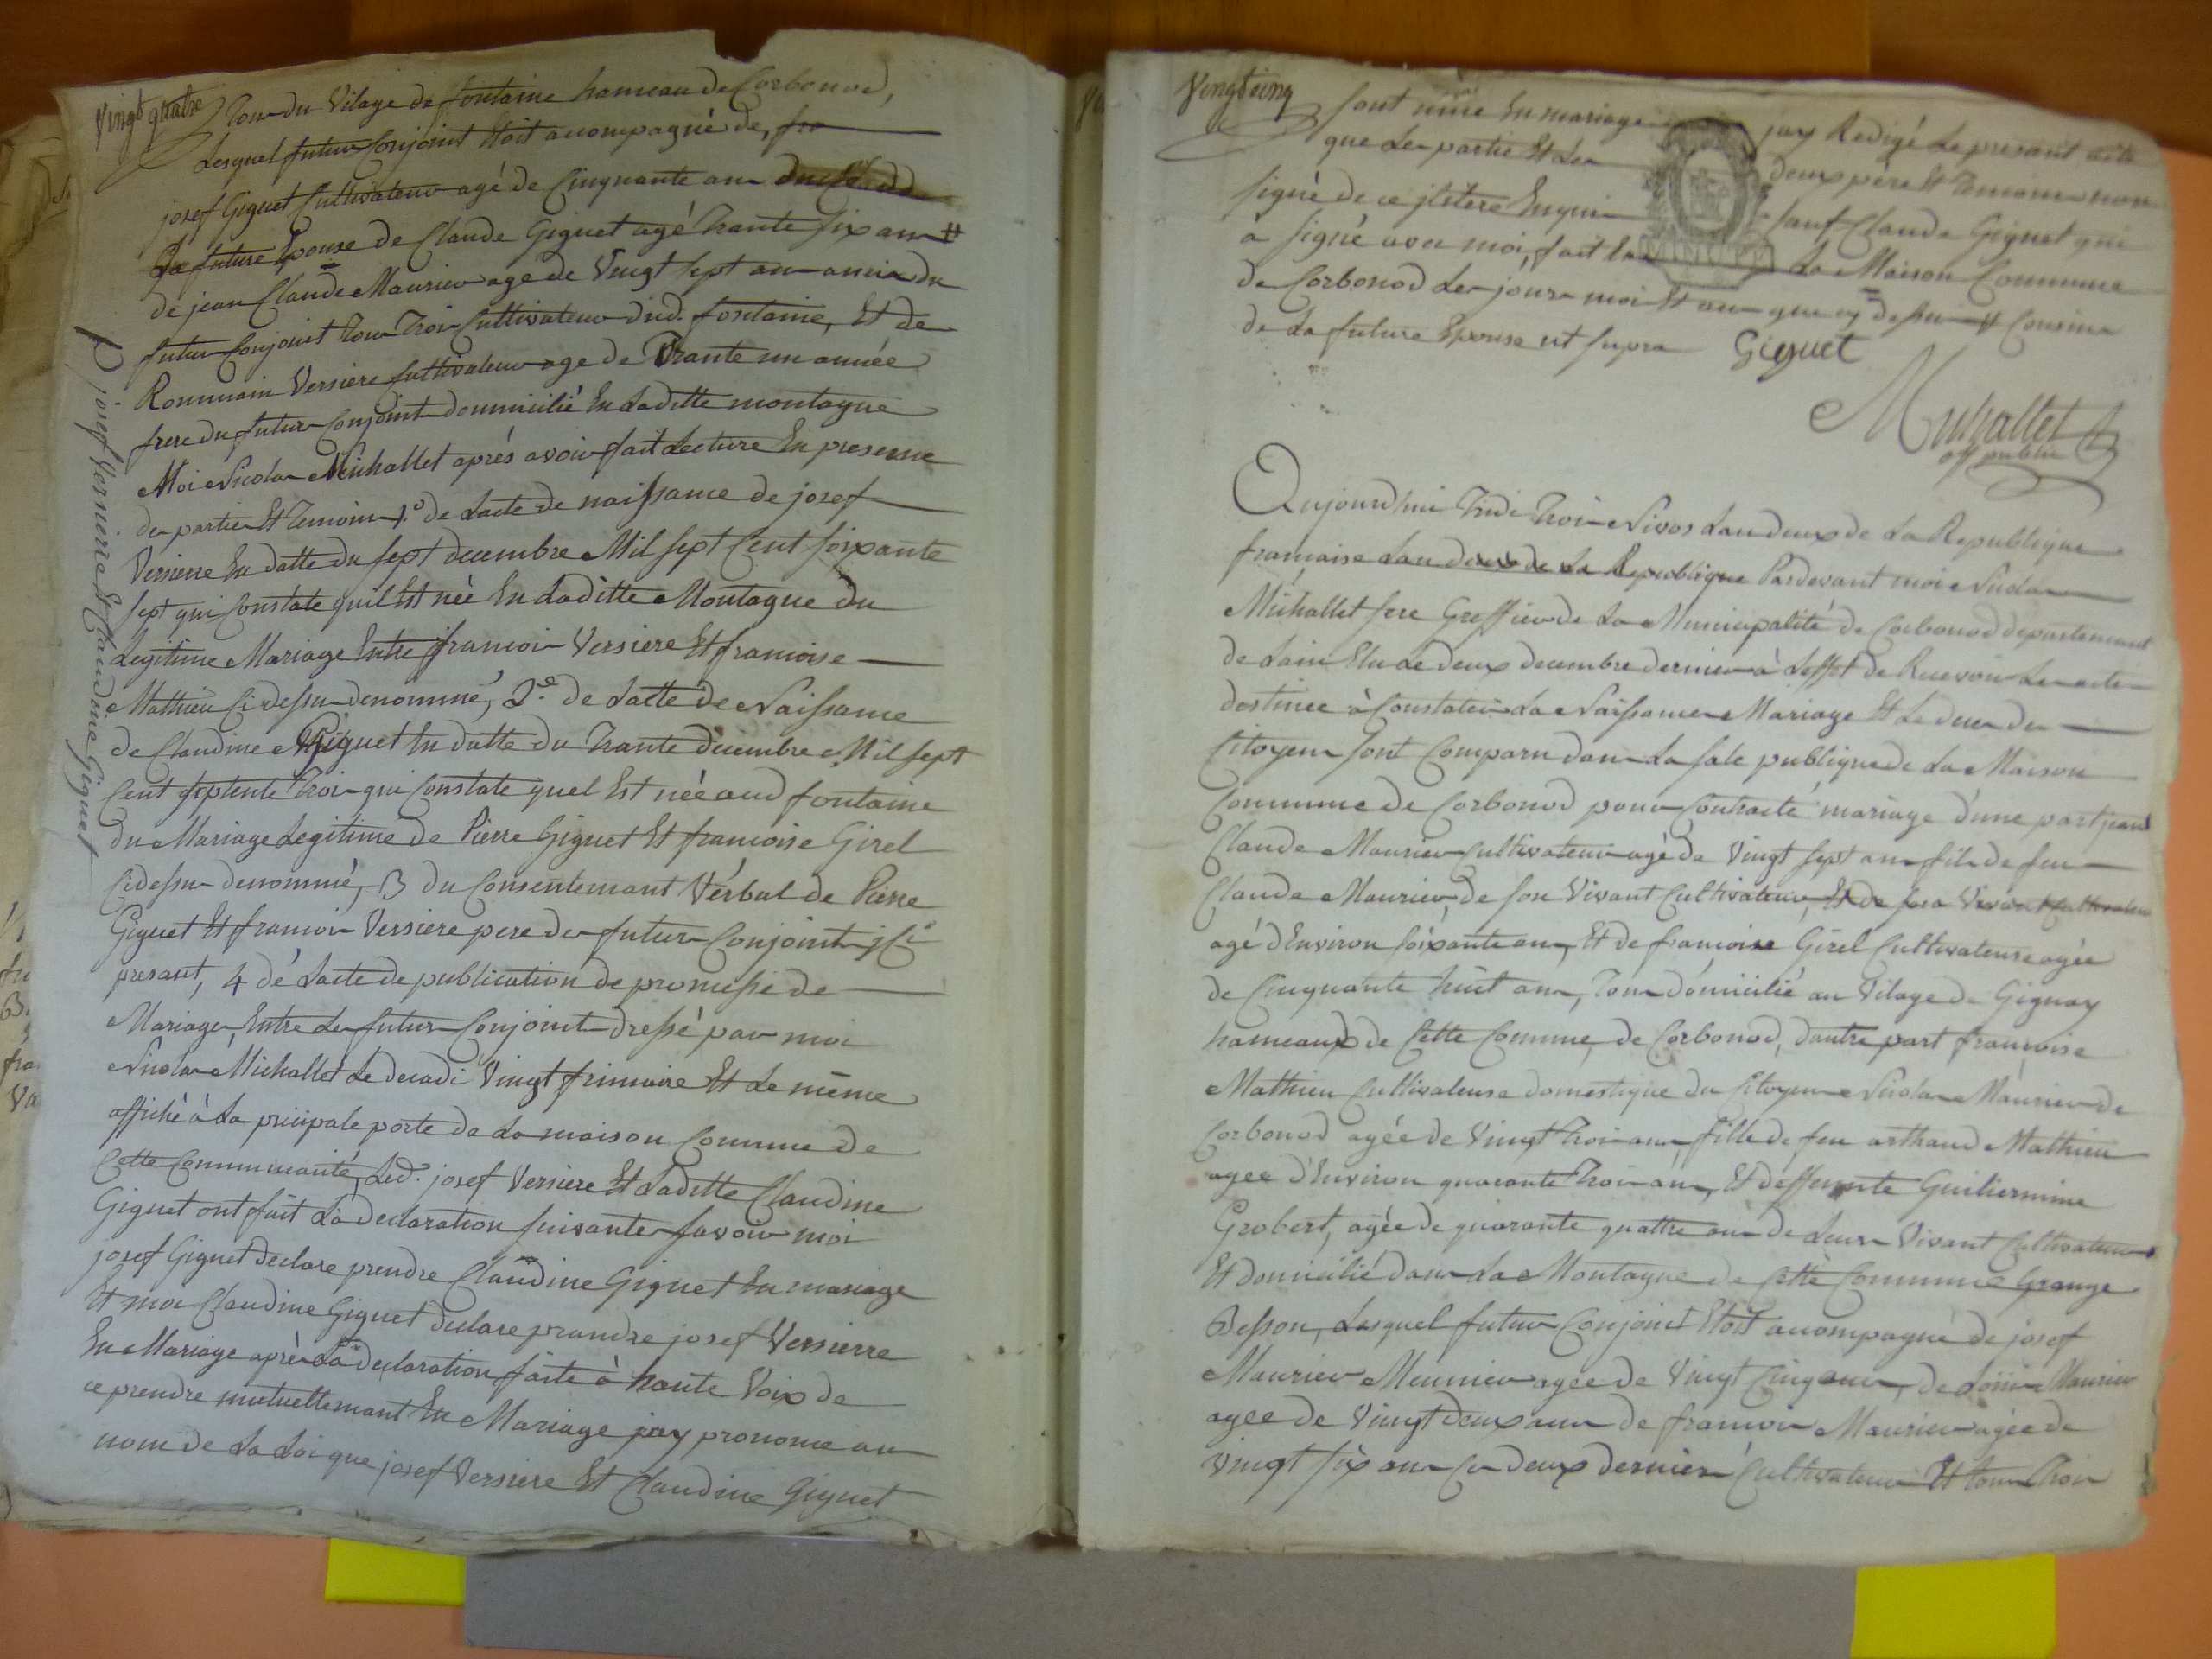 Vingt quatre
Tous du Vilage de fontaine hameau de Corbonod,
Lesquel futur Conjoint Etoit acompagné de,
josef Giguet Cultivateur agé de Cinquante ans
La future Epouse de Claude Giguet agé trante six ans #
de jean Claude Maurier age de Vingt sept ans amis du
futur Conjoint tous trois Cultivateur dud. fontaine, Et de
Rommain Versiere Cultivateur age de Trante un année
frere du futur Conjoint dommicilié En Laditte montagne
Moi Nicolas Michallet aprés avoir fait Lecture En presence
des parties Et Temoins 1.° de Lacte de naissance de josef
Versiere En datte du sept decembre Mil sept Cent soixante
sept qui Constate quil Est née En Laditte Montagne du
Legitime Mariage Entre francois Versiere Et francoise
Mathieu Ci dessus denommé, 2.e de Lacte de Naissance
de Claudine Giguet En datte du trante decembre Mil sept
Cent septente trois qui Constate quel Est née aud fontaine
du Mariage Legitime de Pierre Giguet Et francoise Girel
Cidessus denommé, 3 du Consentemant Vérbal de Pierre
Giguet Et francois Versiere pere des futurs Conjoint ici
presant, 4 dé Lacte de publication de promesse de
Mariage, Entre les futurs Conjoint dressé par moi
Nicolas Michallet Le decadi Vingt frimaire Et Le même
affiché à La pricipale porte de La maison Comune de
Cette Communauté, Led. josef Versiere Et Laditte Claudine
Giguet ont fait La declaration suivante savoir moi
josef Giguet declare prendre Claudine Giguet En mariage
Et moi Claudine Giguet declare prandre josef Versierre
En Mariage après La declaration faite à haute Voix de
ce prendre mutuellemant En Mariage jay prononce au
nom de La Loi que josef Versiere Et Claudine Giguet
josef Versiere Et Claudine Giguet
Vingtcinq
sont unie En mariage jay Redigé Le presant acte
que Les partie Et Les deux pére Et Temoins non
signè de ce Enquis sauf Claude Giguet qui
a signé avec moi, fait La MINUTE La Maison Commune
de Corbonod Les jours mois Et an que cy dessus # Cousins
de La future Epouse ut supra Giguet
Michallet
off public
Aujourdhui Tridi trois Nivos Lan deux de La Republique
francaise Lan deux de La Republique Pardevant moi Nicolas
Michallet sere Greffier de La Municipalité de Corbonod departemant
de Lain Elu Le deux decembre dernier à Leffet de Recevoir Les actes
destinee à Constater La Naissances Mariage Et Le deces des
Citoyens sont Comparu dans La sale publique de La Maison
Commune de Corbonod pour Contracté mariage d'une part jean
Claude Maurier Cultivateur agé de Vingt sept ans fils de feu
Claude Maurier, de son Vivant Cultivateur, Et de son Vivant Cultivateur
agé dEnviron soixante ans, Et de francoise Girel Cultivateuse agée
de Cinquante huit ans, Tous domicilié au Vilage de Gignay
hameaux de Cette Comune, de Corbonod, dautre part francoise
Mathieu Cultivateuse domestique du Citoyen Nicolas Maurier de
Corbonod agée de Vingt trois ans, fille de feu arthaud Mathieu
agee d'Environ quarante trois ans, Et deffeunte Guilermine
Grobert, agée de quarante quattre ans de Leurs Vivant Cultivateurs
Et domicilié dans La Montagne de Cette Commune Grange
Besson, Lesquel futurs Conjoint Etoit acompagné de josef
Maurier Meunier agee de Vingt Cinq ans, de Loüis Maurier
agee de Vingt deux ans de francois Maurier agée de
vingt six ans Ces deux derniers Cultivateur Et tous trois